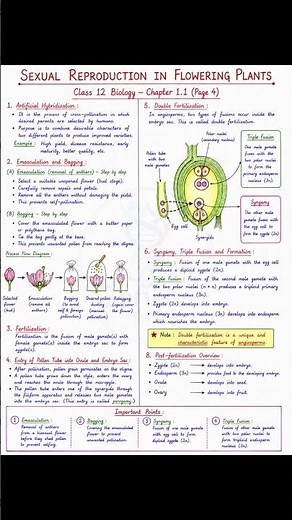 SEXUAL REPRODUCTION IN FLOWERING PLANTS
Class 12 Biology – Chapter 1.1 (Page 4)
1. Artificial Hybridisation :
• It is the process of cross-pollination in which
desired parents are selected by humans.
• Purpose is to combine desirable characters of
two different plants to produce improved varieties.
Example : High yield, disease resistance, early
maturity, better quality, etc.
2. Emasculation and Bagging :
(A) Emasculation (removal of anthers) – Step by step
• Select a suitable unopened flower (bud stage).
• Carefully remove sepals and petals.
• Remove all the anthers without damaging the pistil.
• This prevents self-pollination.
(B) Bagging – Step by step
• Cover the emasculated flower with a butter paper
or polythene bag.
• Tie the bag gently at the base.
• This prevents unwanted pollen from reaching the stigma.
Process Flow Diagram :
Selected
flower
(bud)
Emasculation
(remove all
anthers)
Bagging
(to avoid
self & foreign
pollination)
Desired pollen
dusting
(manual
pollination)
Rebagging
(to
the flower)
3. Fertilisation :
Fertilisation is the fusion of male gamete(s) with
female gamete(s) inside the embryo sac to form
zygote(s).
4. Entry of Pollen Tube into Ovule and Embryo Sac :
• After pollination, pollen grain germinates on the stigma.
• A pollen tube grows down the style, enters the ovary
and reaches the ovule through the micropyle.
• The pollen tube enters one of the synergids through
the filiform apparatus and releases two male gametes
into the embryo sac. (This entry is called porogamy.)
5. Double Fertilisation :
In angiosperms, two types of fusions occur inside the
embryo sac. This is called double fertilisation.
Polar nuclei
(secondary nucleus)
Pollen tube with
two male
gametes
Egg cell
Synergids
Triple Fusion
One male gamete
fuses with the
two polar nuclei
to form the primary
endosperm nucleus
(3n).
Syngamy
The other male
gamete fuses
with the egg
cell to form
the zygote (2n)
6. Syngamy, Triple Fusion and Formation :
• Syngamy : Fusion of one male gamete with the egg cell
produces a diploid zygote (2n).
• Triple Fusion : Fusion of the second male gamete with the
two polar nuclei (n + n) produces a triploid primary
endosperm nucleus (3n).
• Zygote (2n) develops into embryo.
Primary endosperm nucleus (3n) develops into endosperm
which nourishes the embryo.
★ Note : Double fertilisation is a unique and
characteristic feature of angiosperms.
8. Post-fertilisation Overview :
• Zygote (2n) → develops into embryo.
• Endosperm (3n) → provides food to the developing embryo.
• Ovule → develops into seed.
• Ovary → develops into fruit.
Important Points :
1 Emasculation :
Removal of anthers
from a bisexual flower
before they shed pollen
to prevent selfing.
2 Bagging :
Covering the emasculated
flower to prevent
unwanted pollination.
3 Syngamy :
Fusion of one male gamete
with egg cell to form
diploid zygote (2n).
4 Triple Fusion :
Fusion of other male gamete
with two polar nuclei to
form triploid endosperm
nucleus (3n).